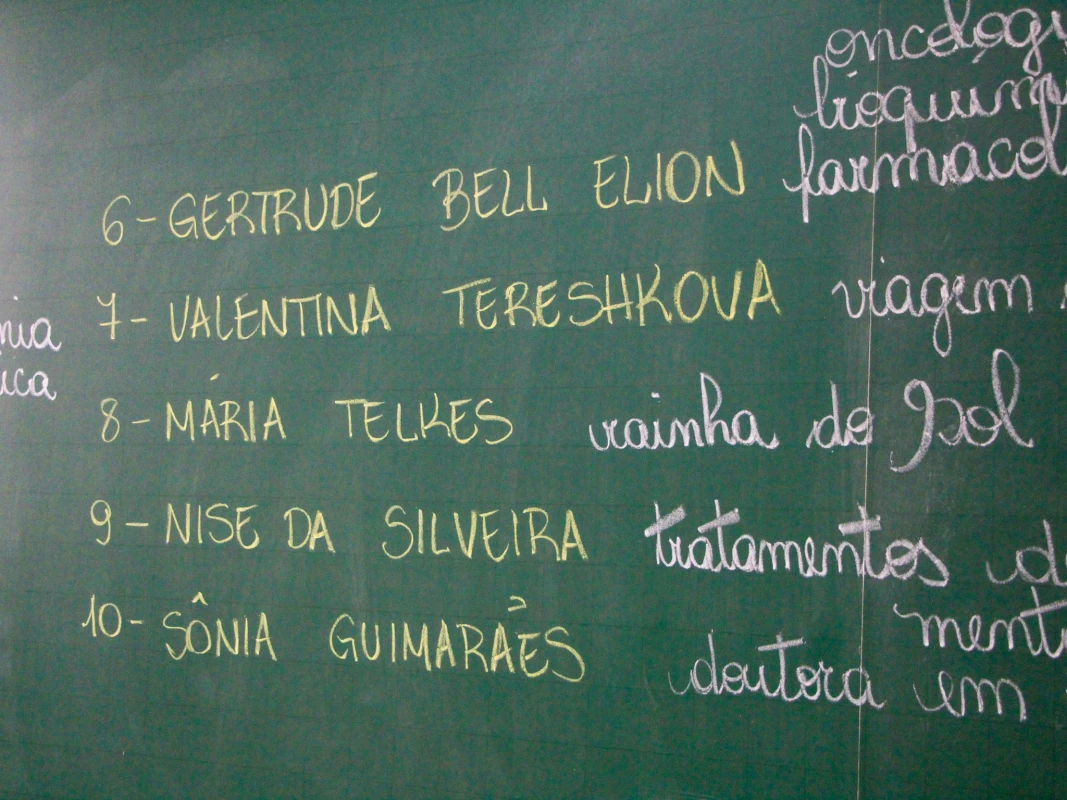 6- GERTRUDE BELL ELION
7- VALENTINA TERESHKOVA viagem
8- MÁRIA TELKES rainha do Sol
9- NISE DA SILVEIRA tratamentos
10- SÔNIA GUIMARÃES doutora em